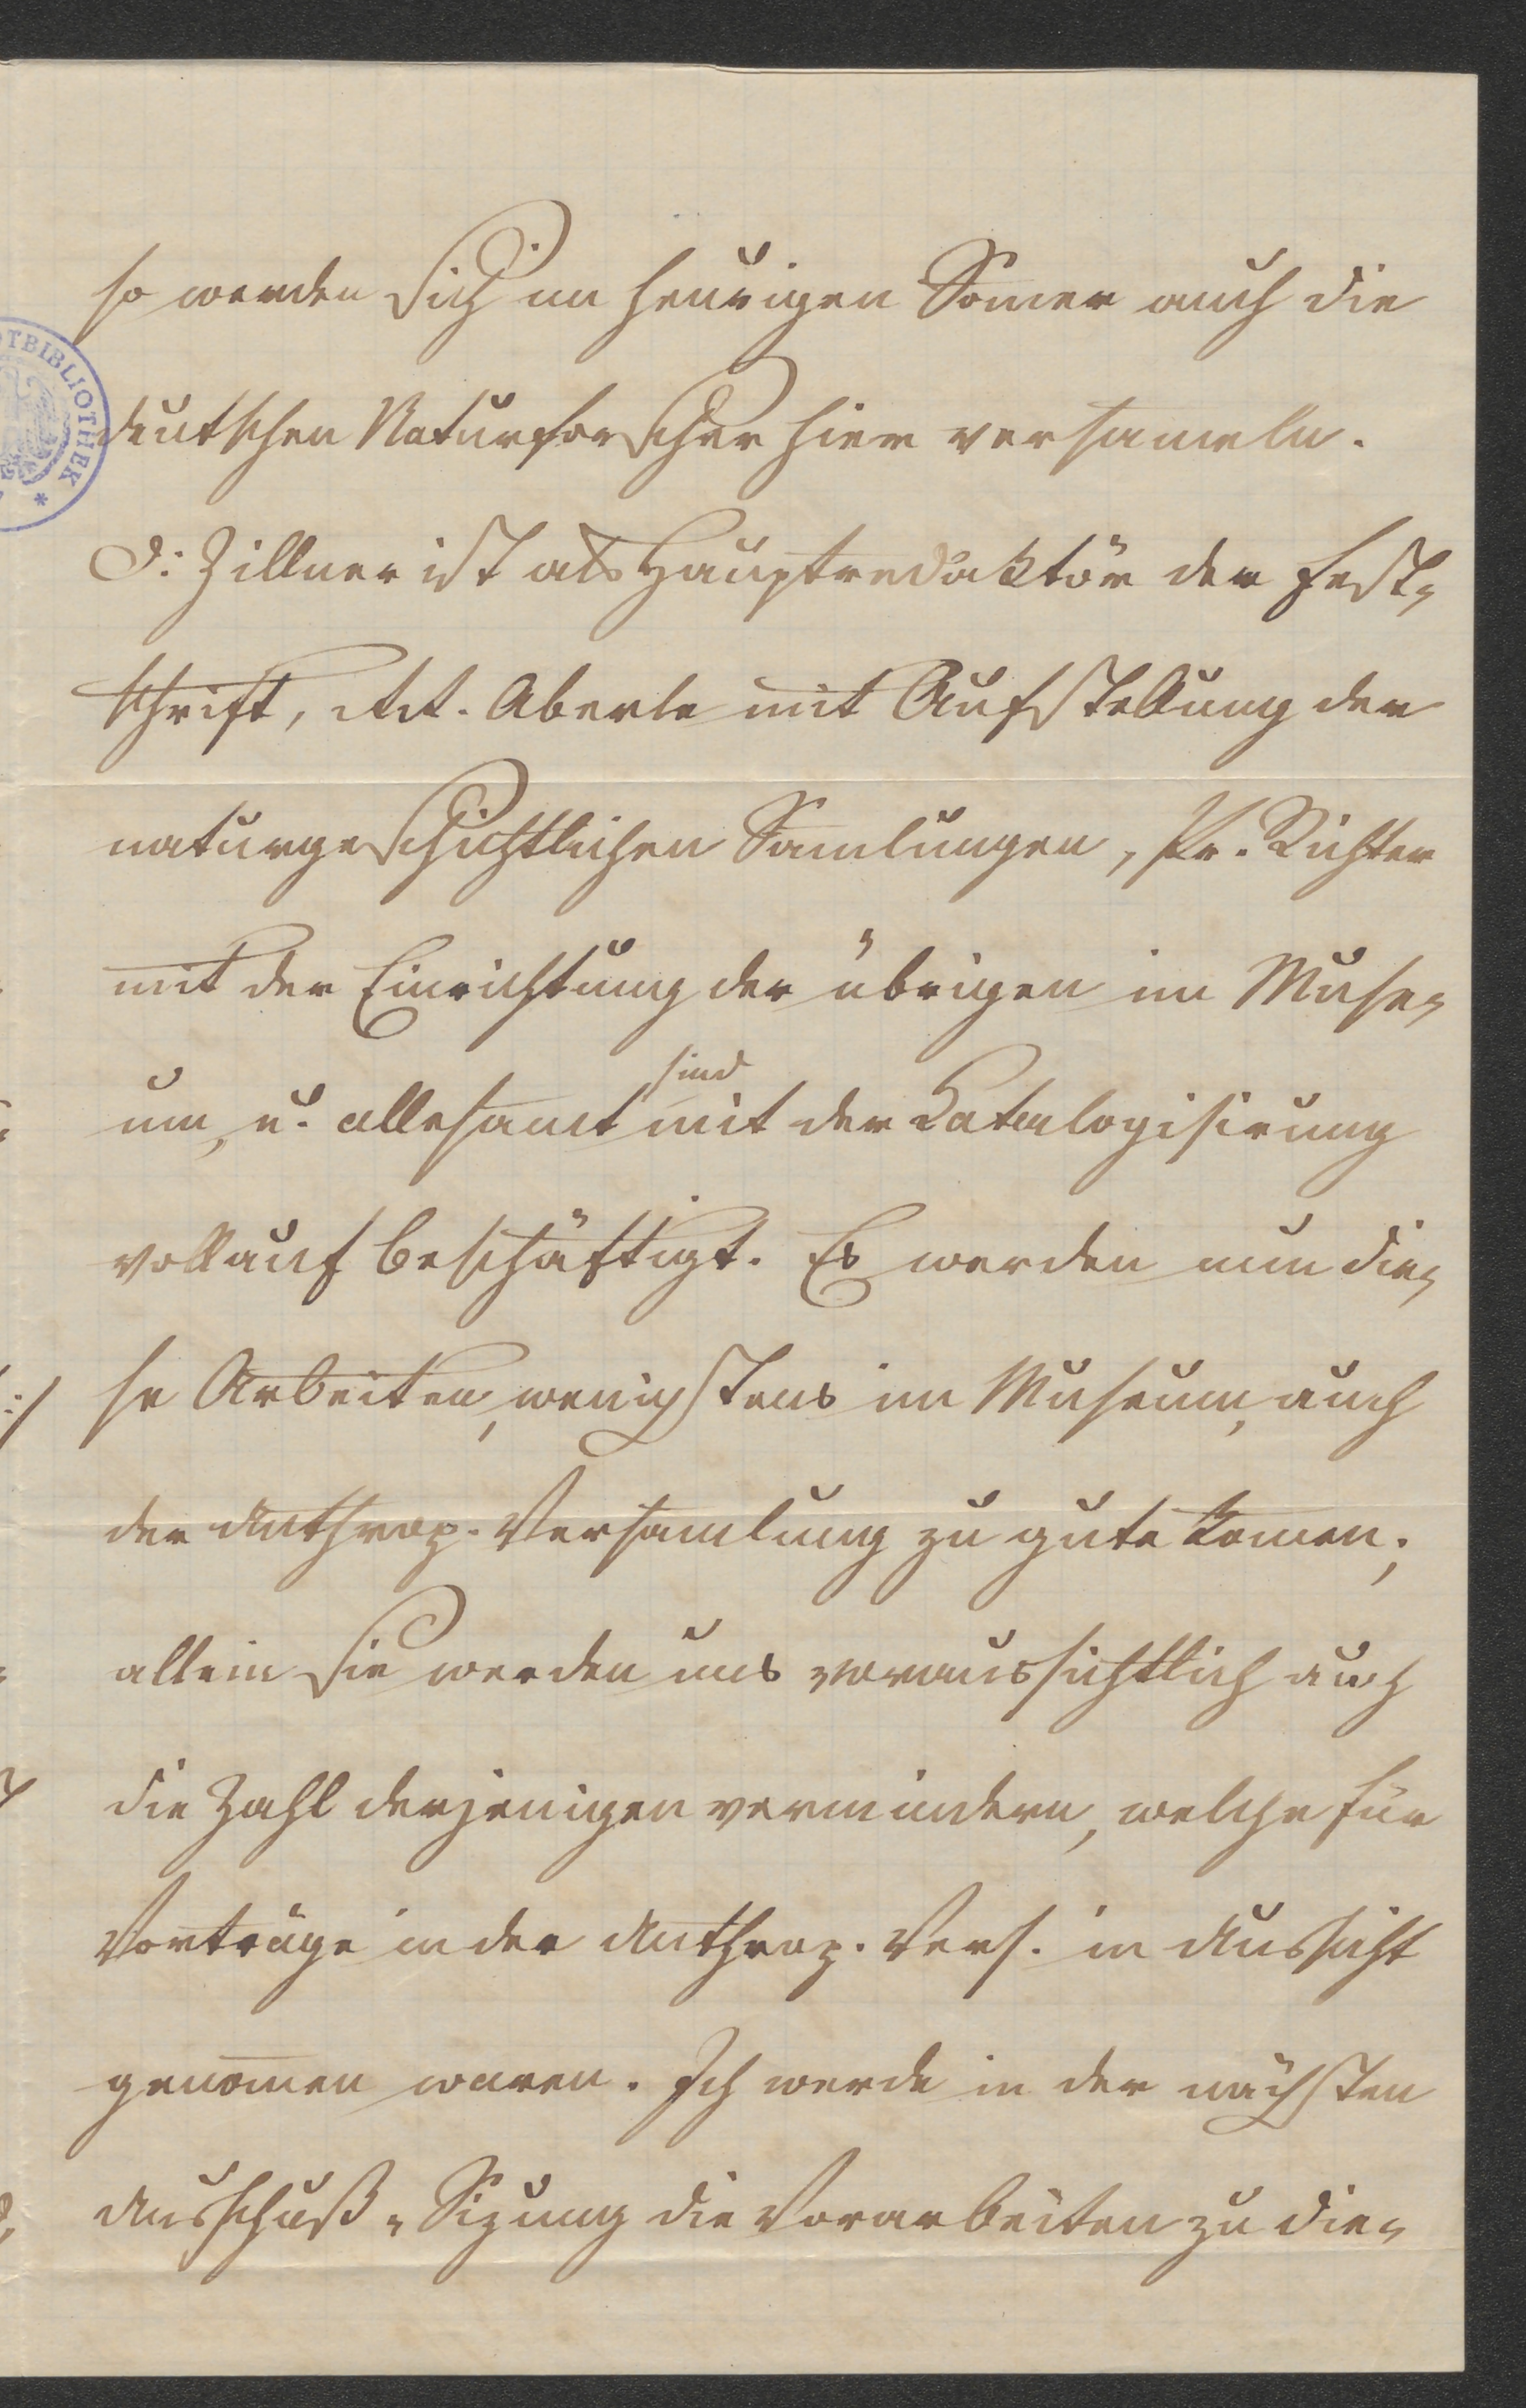 so werden sich im heurigen Som̄er auch die
deutschen Naturforscher hier versam̄eln.
D: Zillner ist als Hauptredaktör der Fest-
schrift, Aberle mit Aufstellung der
naturgeschichtlichen Sam̄lungen, Pr. Richter
mit der Einrichtung der übrigen im Muse-
um, u. allesam̄t sind mit der Katalogisirung
vollauf beschäftigt. Es werden nun die-
se Arbeiten, wenigstens im Museum, auch
der Anthrop. Versam̄lung zu gute kom̄en;
allein sie werden uns voraussichtlich auch
die Zahl derjenigen vermindern, welche für
Vorträge in der Anthrop. Vers. in Aussicht
genom̄en waren. Ich werde in der nächsten
Ausschuß-Sizung die Vorarbeiten zu die-
TBIBLIOTHEK *